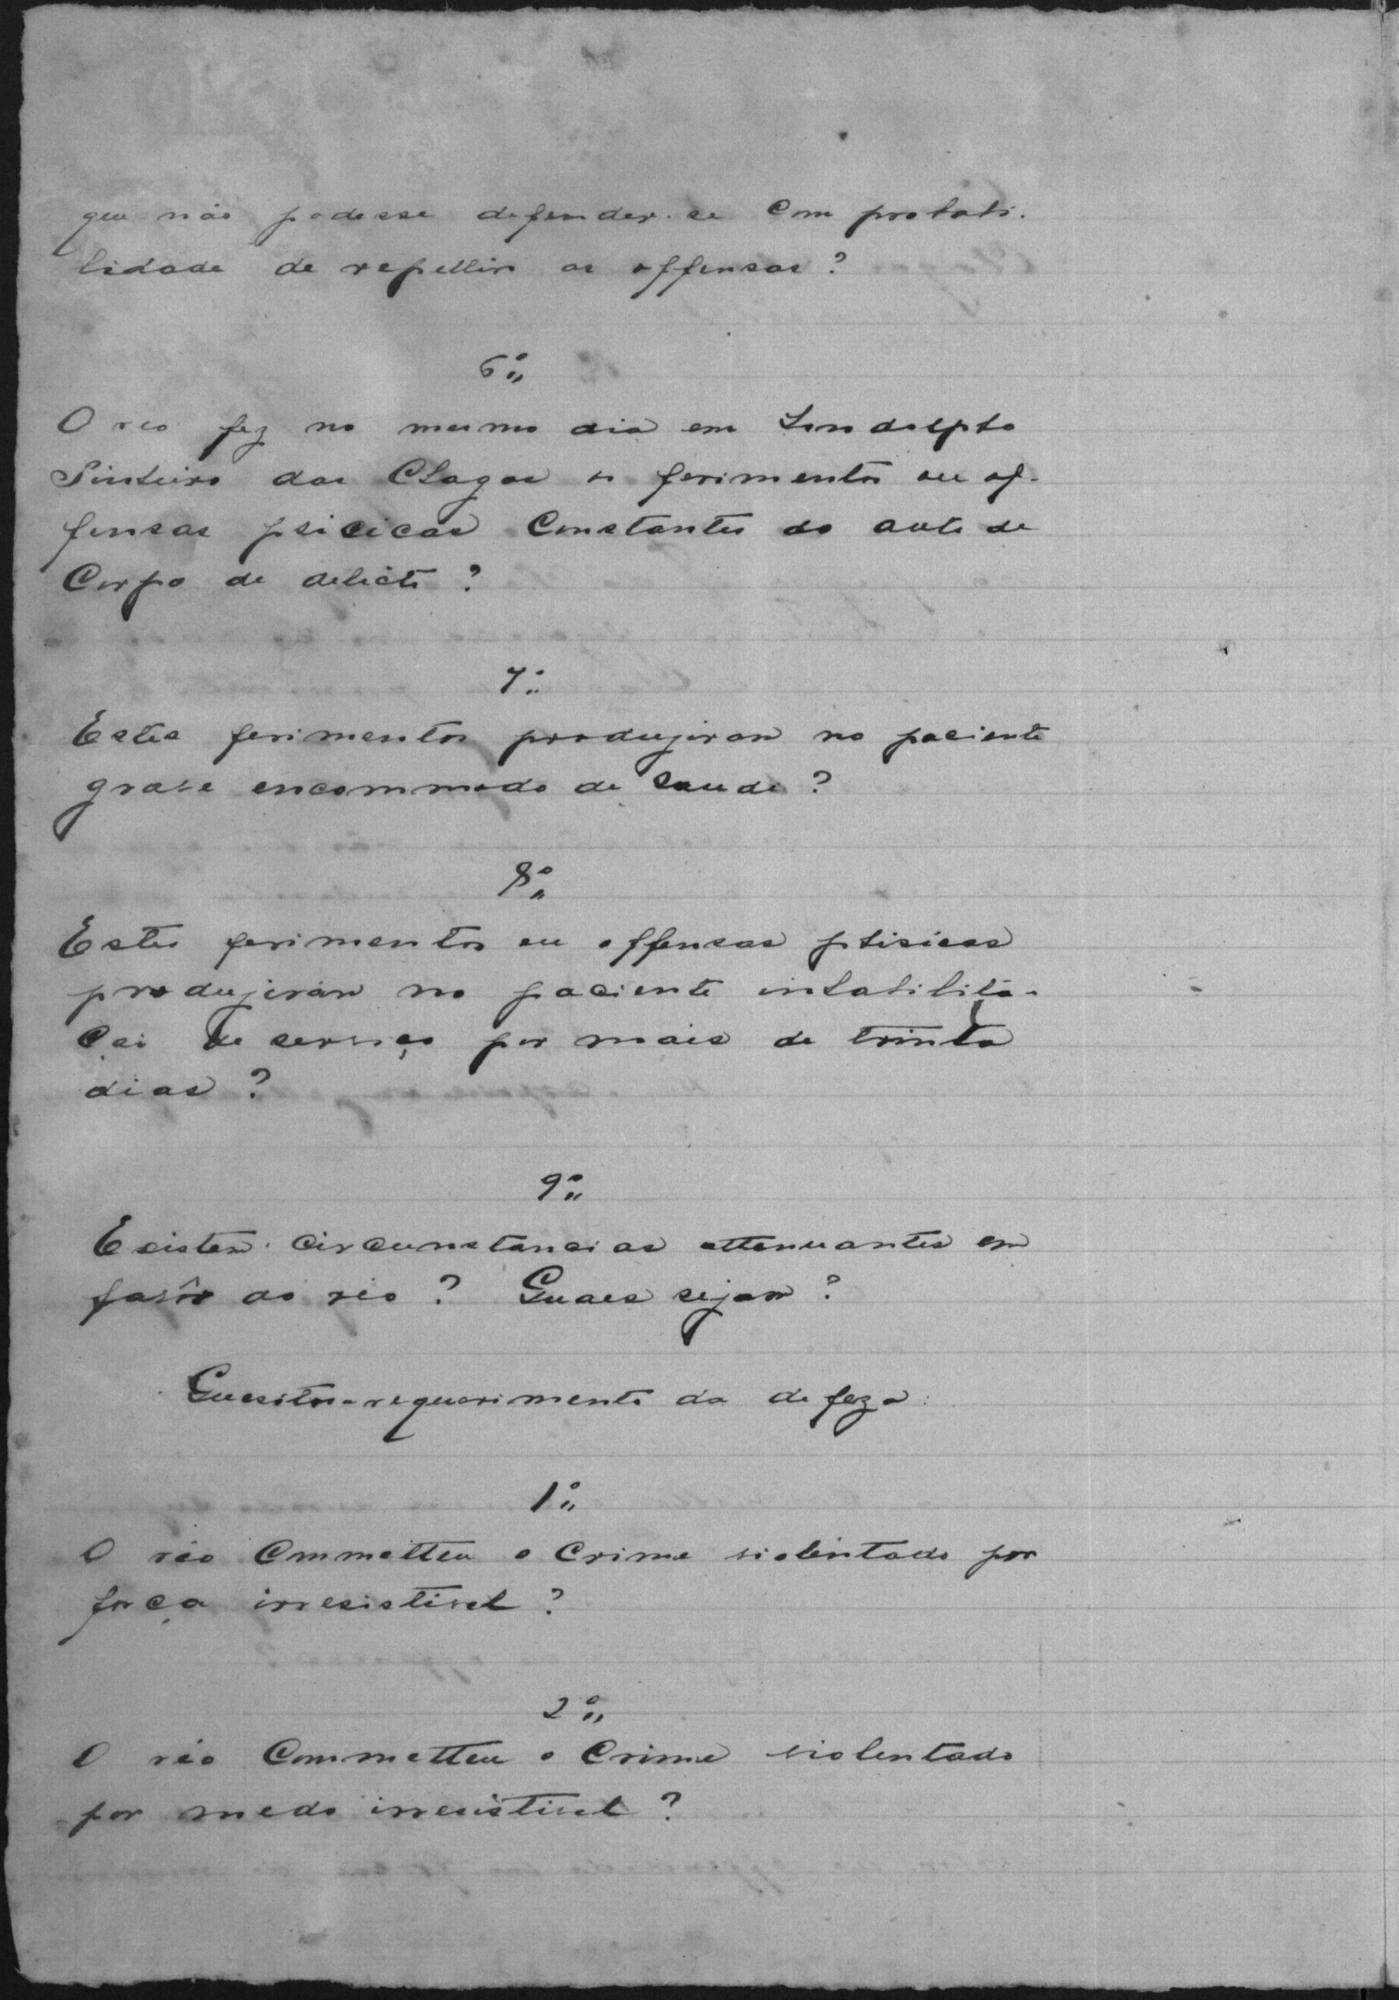 que não podesse defender-se com probabi-
lidade de repellir as offensas?
6º
O reo fez no mesmo dia em Landolpho
Pinheiro das Chagas os ferimentos ou of-
fensas phicicas constantes do auto de
Corpo de delicto?
7º
Estes ferimentos produjiram no paciente
grave encommodo de saude?
8º
Estes ferimentos ou offensas phisicas
produjiram no paciente inhabilita-
ção de serviço por mais de trinta
dias?
9º
Existem circumstancias attenuantes em
favôr do réo? Quaes sejam?
Quesitos a requerimento da defeza:
1º
O réo commetteu o crime violentado por
força irresistivel?
2º
O réo commetteu o crime violentado
por medo irresistivel?